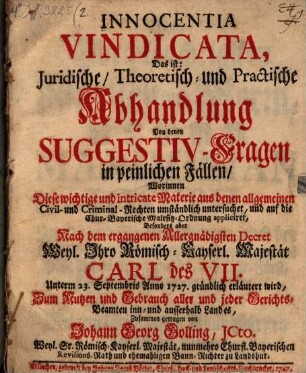 INNOCENTIA
VINDICATA,
Das ist:
Juridische/ Theoretisch- und Practische
Abhandlung
Von denen
SUGGESTIV-Fragen
in peinlichen Fällen/
Worinnen
Diese wichtige und intricate Materie aus denen allgemeinen
Civil- und Criminal-Rechten umständlich untersuchet, und auf die
Chur-Bayerische Malefiz-Ordnung appliciret,
Besonders aber
Nach dem ergangenen Allergnädigsten Decret
Weyl. Ihro Römisch-Kayserl. Majestät
CARL des VII.
Unterm 23. Septembris Anno 1727. gründlich erläutert wird,
Zum Nutzen und Gebrauch aller und jeder Gerichts-
Beamten inn- und ausserhalb Landes,
Zusammen getragen von
Johann Georg Golling, JCto.
Weyl. Sr. Römisch-Kayserl. Majestät, nunmehro Churfl. Bayerischen
Revisions-Rath und ehemahligen Bann-Richter zu Landshut.